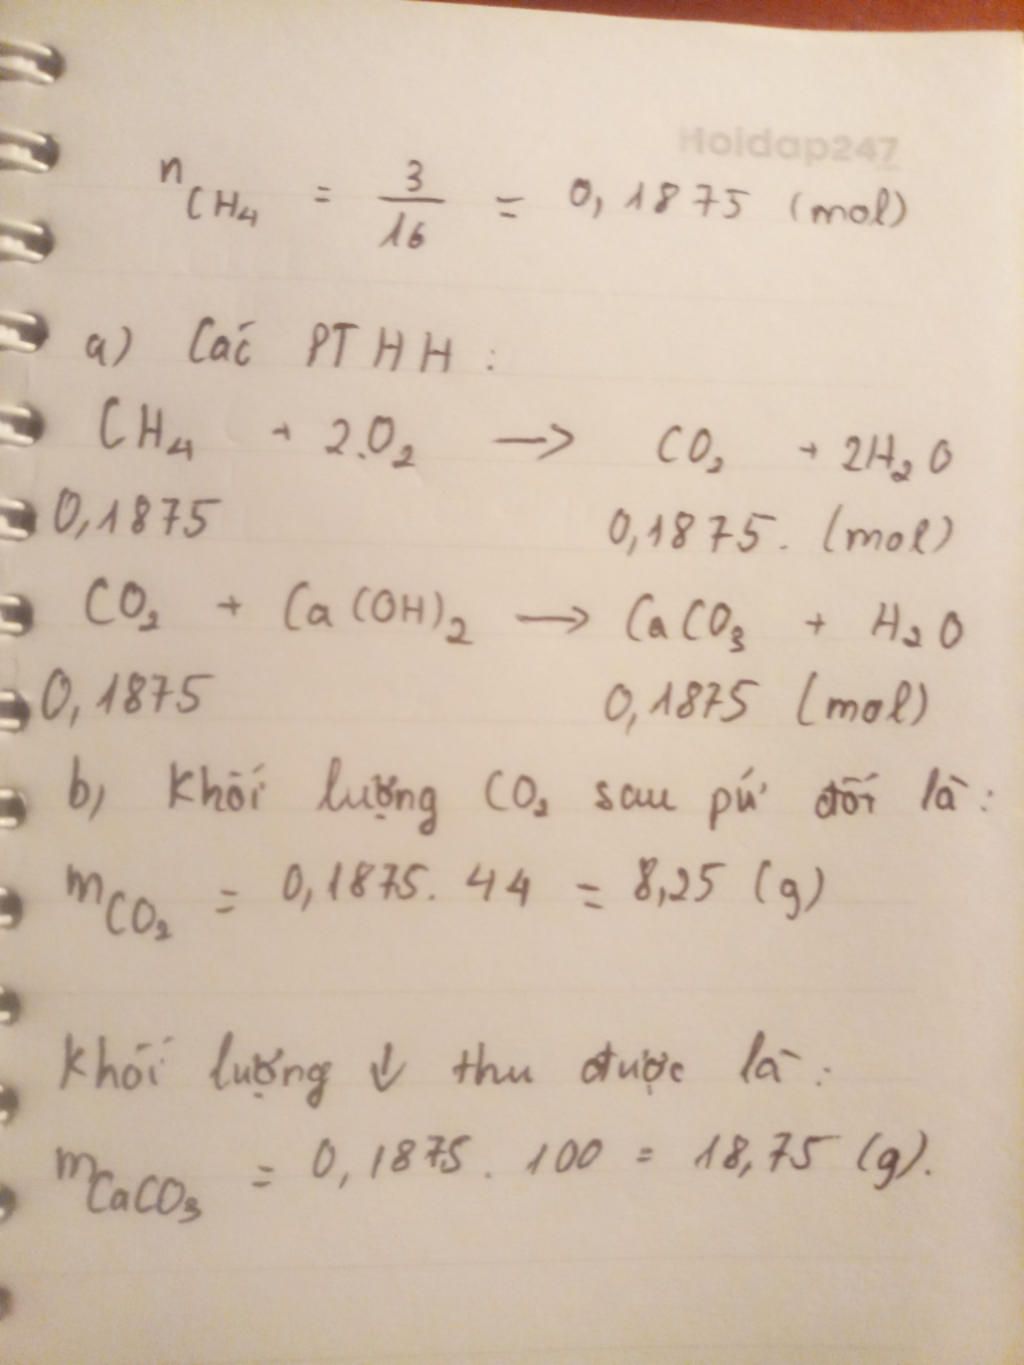 Hoidap247
n CH₄ = 3/16 = 0,1875 (mol)
a) Các PTHH:
CH₄ + 2.O₂ → CO₂ + 2H₂O
0,1875 0,1875. (mol)
CO₂ + Ca(OH)₂ → CaCO₃ + H₂O
0,1875 0,1875 (mol)
b, Khối lượng CO₂ sau pứ đốt là:
m CO₂ = 0,1875. 44 = 8,25 (g)
Khối lượng ↓ thu được là:
m CaCO₃ = 0,1875. 100 = 18,75 (g).